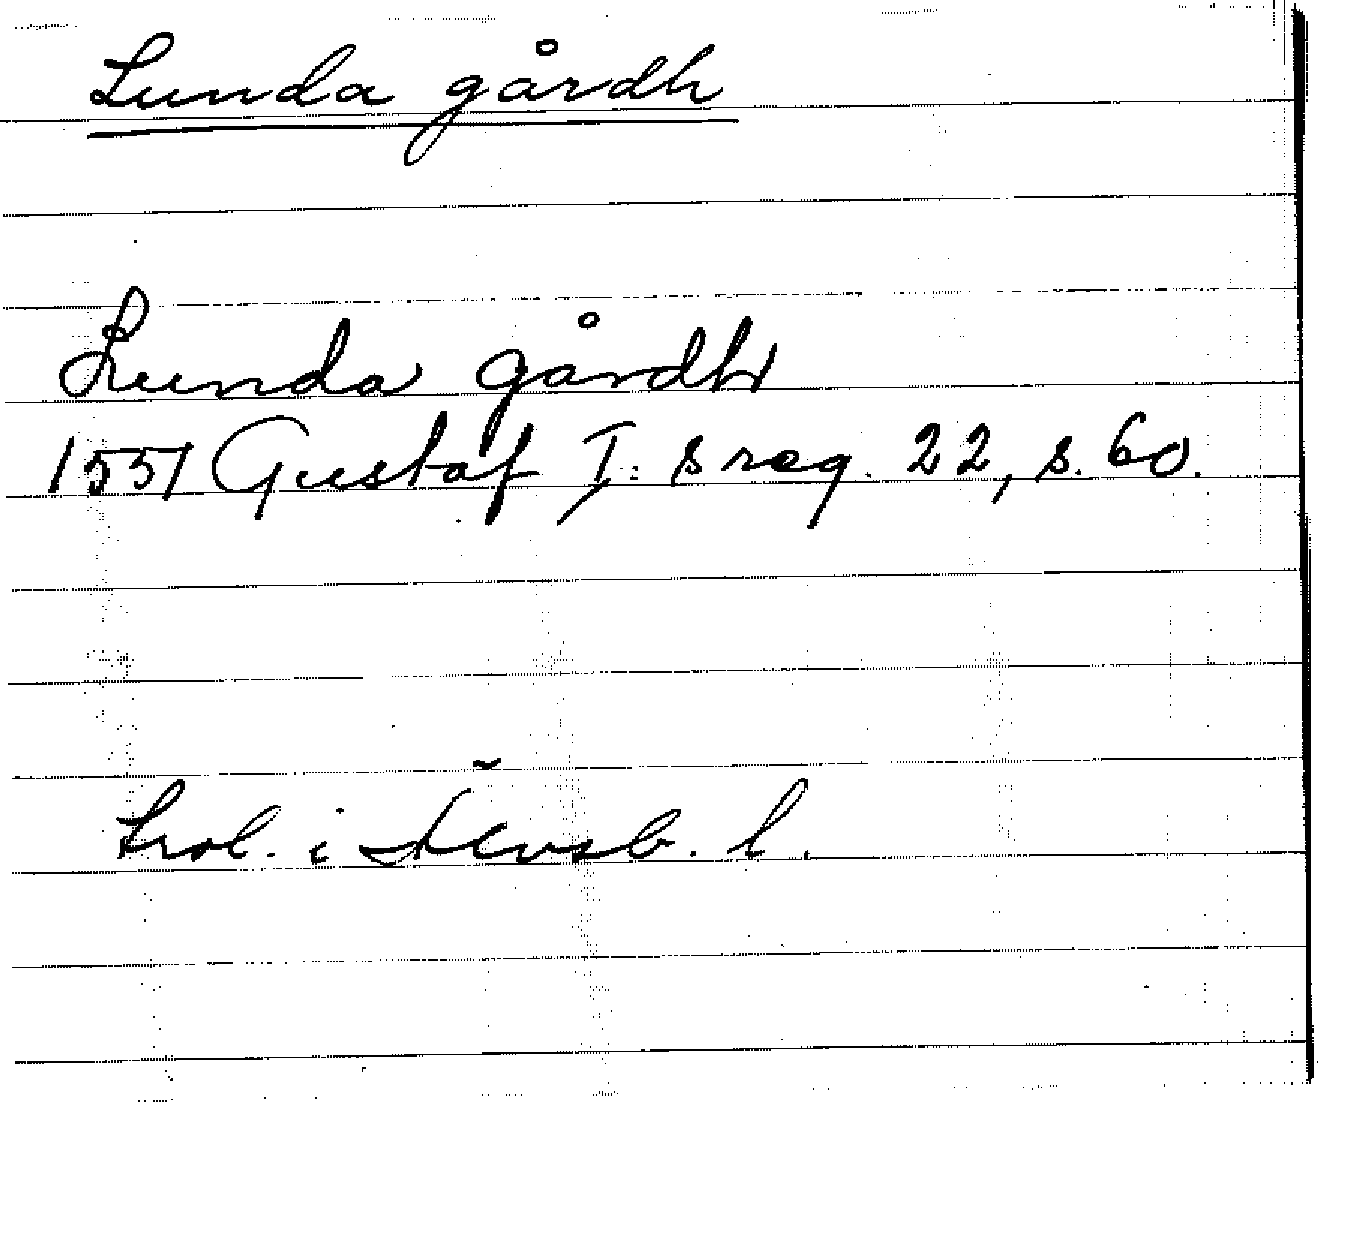 Lunda gårdh
Lunda gårdh
1551 Gustaf I:s reg. 22, s. 60.
trol. i Älvsb. l.